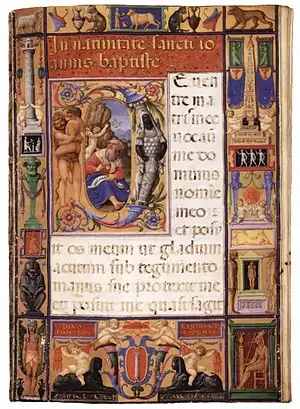 In natiuitate sancti io
annis baptiste
E uen
tre ma
tris mee
me do
minus
meo
et posu
it os meum ut gladium
acutum sub tegumento
manus sue protexit me
et posuit me quasi sagit